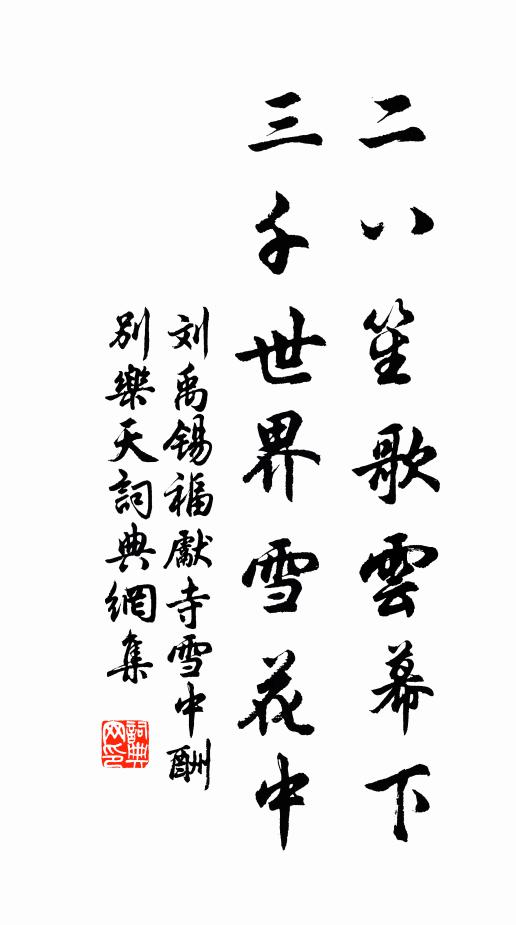 二八笙歌雲幕下
三千世界雪花中
刘禹锡福獻寺雪中酬
别樂天詞典網集
詞典
网印